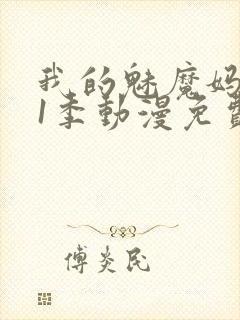 我的魅魔妈
1季動漫免費
傅炎民